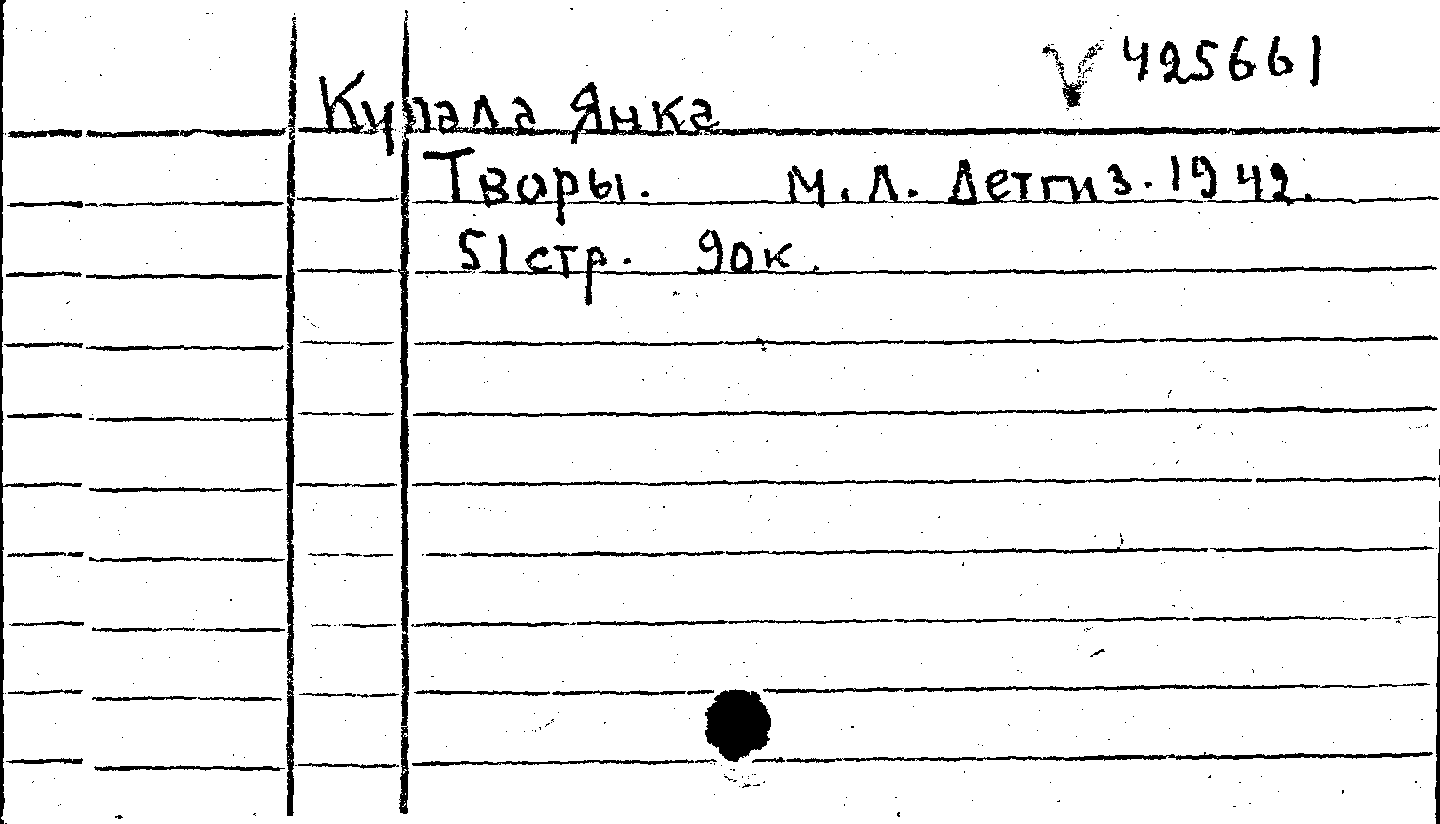 425661
Купала Янка
Творы. М.Л. Детгиз. 1942.
51 стр. 90к.